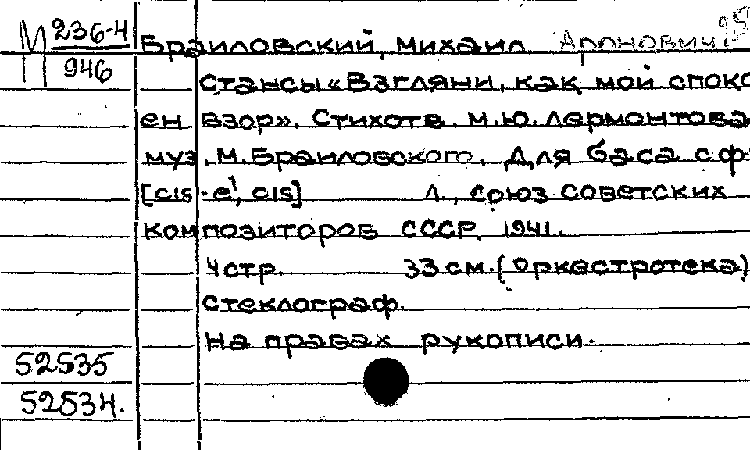 М 236-4
946
Браиловский, Михаил Аронович.
Стансы «Взгляни, как мой споко
ен взор». Стихотв. М.Ю. Лермонтова
муз. М. Браиловского. Для баса с ф
[cis - e¹, cis] Л., Союз советских
композиторов СССР, 1941.
4 стр. 33 см. (Оркастротека)
Стеклограф.
На правах рукописи.
52535
52534.